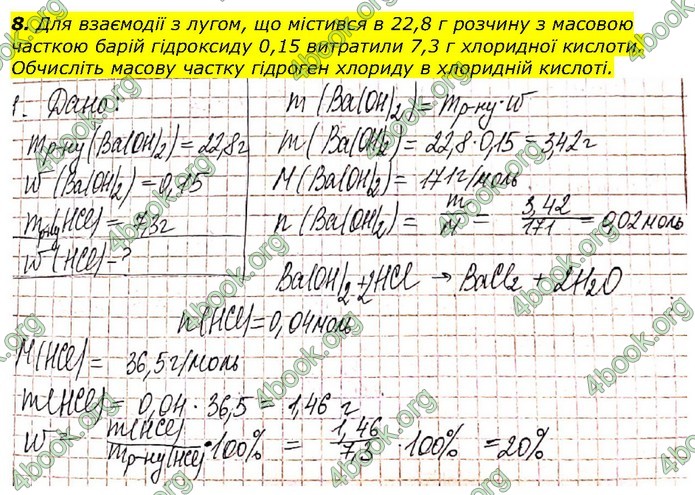 8. Для взаємодії з лугом, що містився в 22,8 г розчину з масовою
часткою барій гідроксиду 0,15 витратили 7,3 г хлоридної кислоти.
Обчисліть масову частку гідроген хлориду в хлоридній кислоті.
1. Дано:
mр-ну(Ba(OH)₂) = 22,8г
w (Ba(OH)₂) = 0,15
mр-ну(HCl) = 7,3г
w (HCl) - ?
m (Ba(OH)₂) = mр-ну · w
m (Ba(OH)₂) = 22,8 · 0,15 = 3,42 г
M (Ba(OH)₂) = 171 г/моль
n (Ba(OH)₂) = m/M = 3,42/171 = 0,02 моль
Ba(OH)₂ + 2HCl → BaCl₂ + 2H₂O
n(HCl) = 0,04 моль
M(HCl) = 36,5 г/моль
m(HCl) = 0,04 · 36,5 = 1,46 г
w = m(HCl)/mр-ну(HCl) · 100% = 1,46/7,3 · 100% = 20%
4book.org